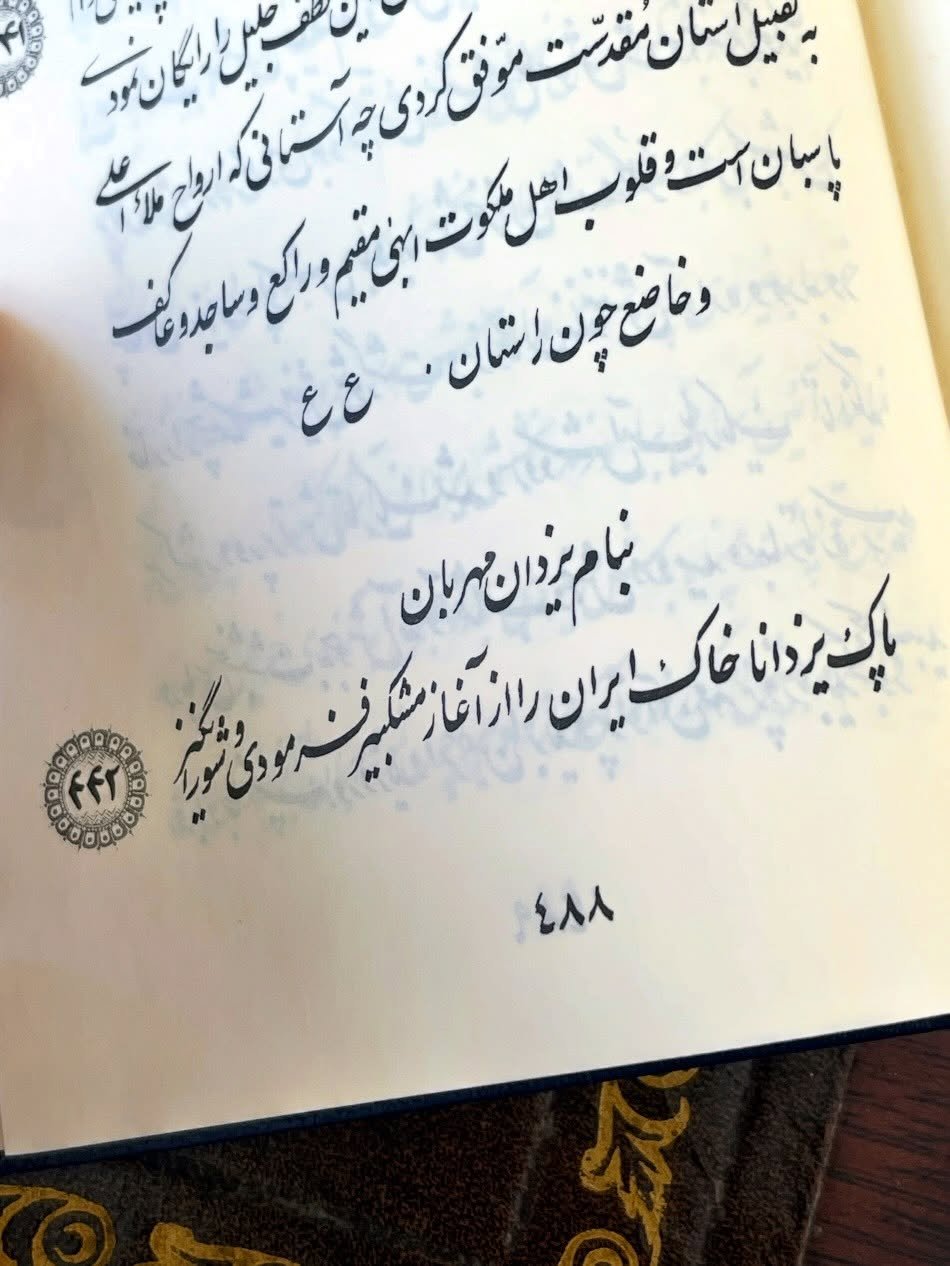 این لطف جلیل را رایگان نمودی
به تقبیل آستان مُقدّست موّفق کردی چه آستانی که ارواح ملاء اعلی
پاسبان است و قلوب اهل ملکوت ابهیٰ مقیم و راکع و ساجد و عاکف
و خاضع چون راستان ٠ ع ع
بنام یزدان مهربان
پاک یزدانا خاک ایران را از آغاز مشکبیز فرمودی و شورانگیز
۴۴۲
٤٨٨